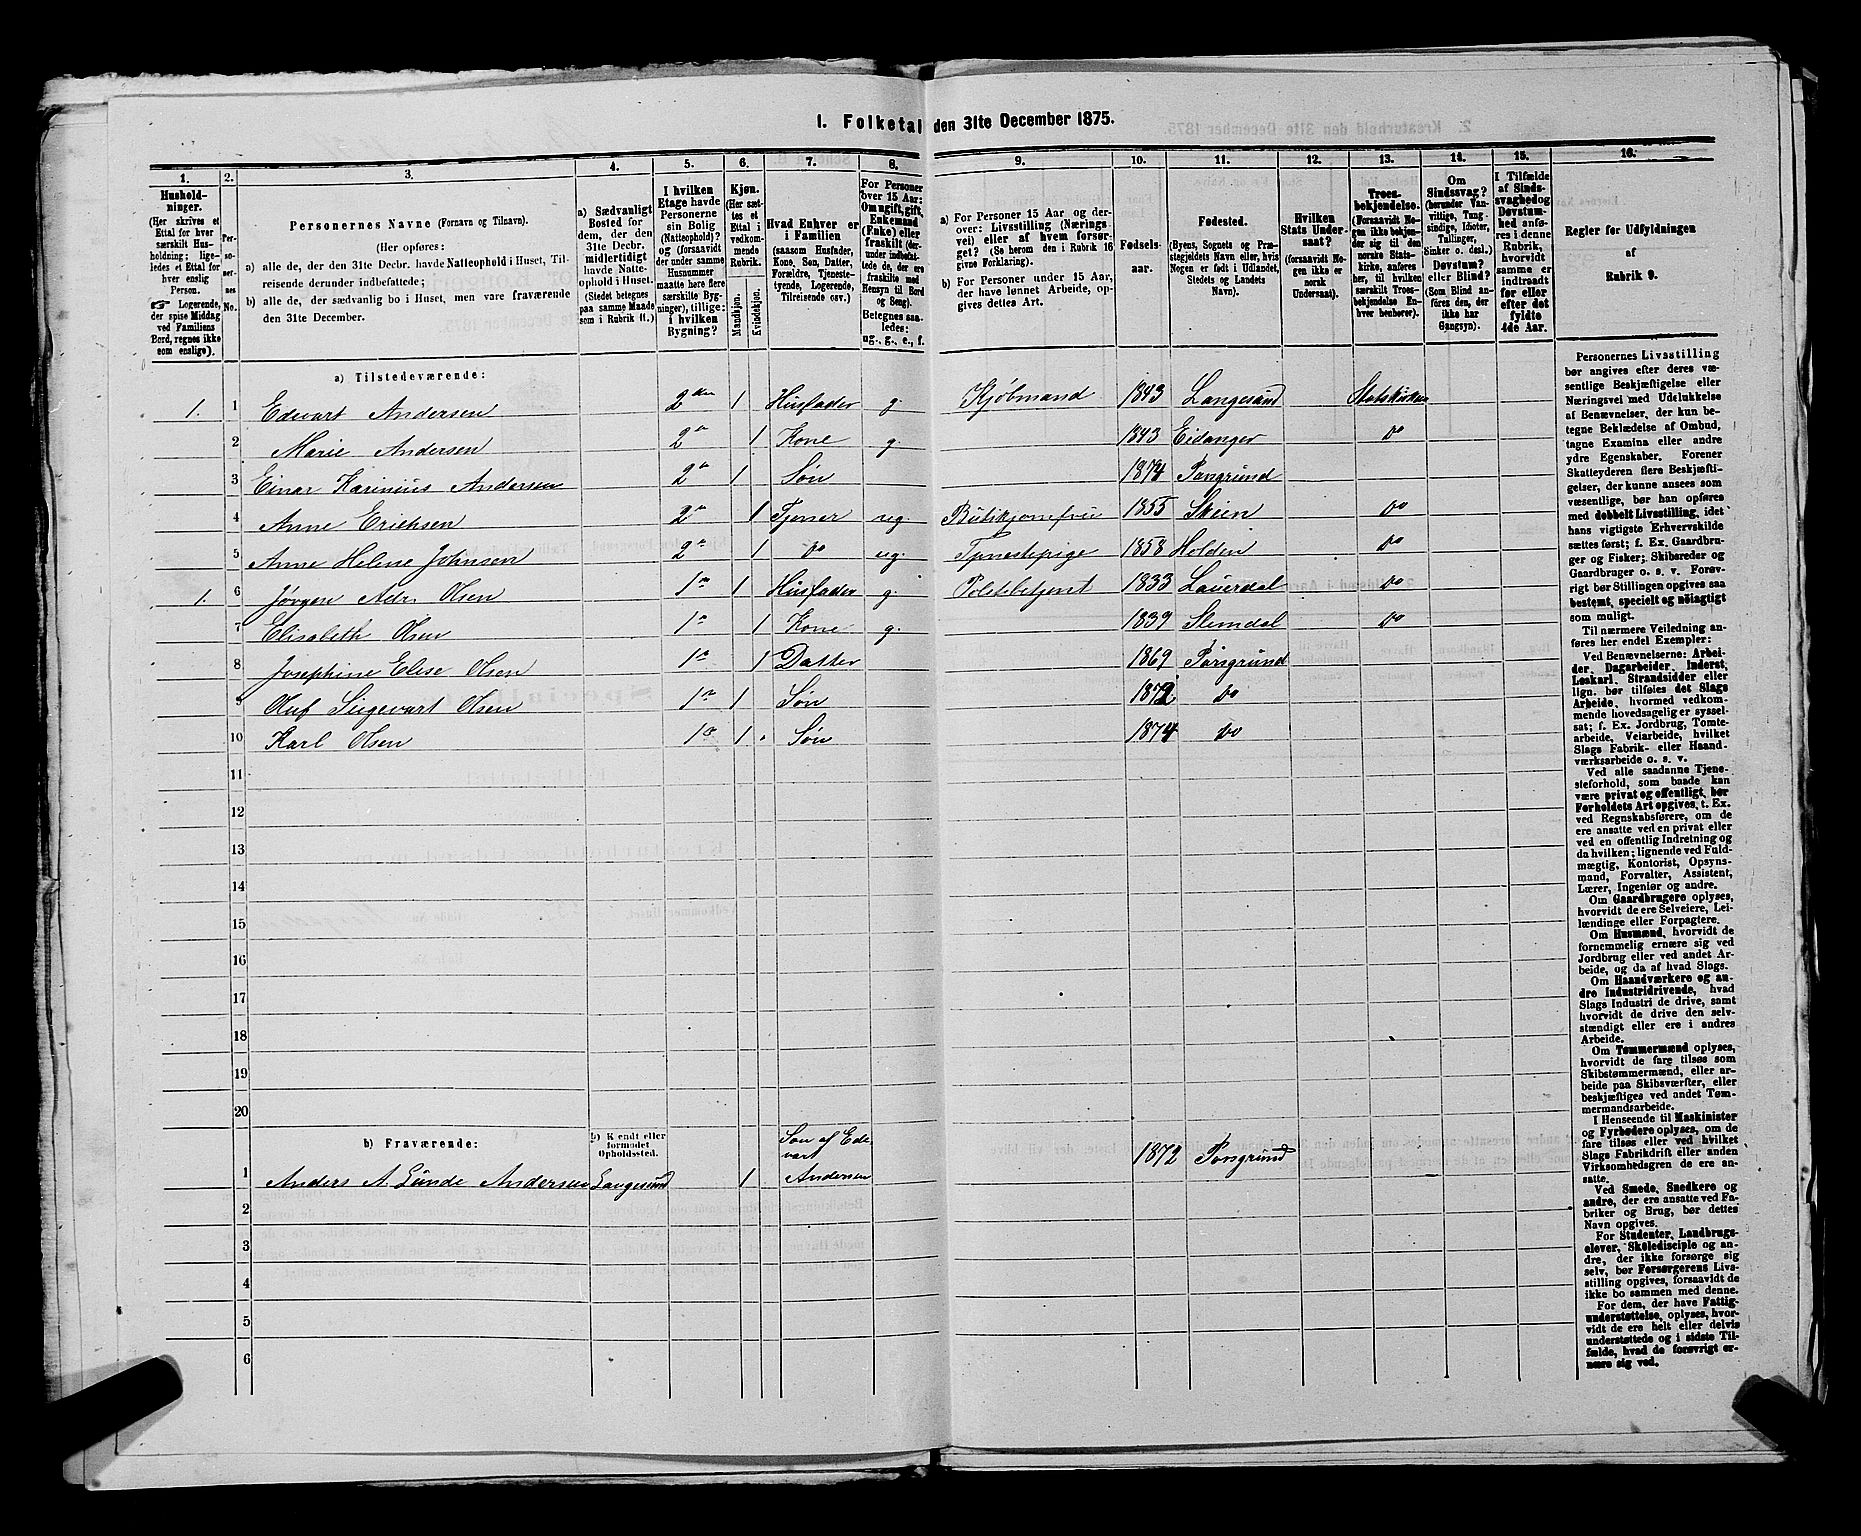 1. Folketal den 31te December 1875.
1. 2. 3. 4. 5. 6. 7. 8. 9. 10. 11. 12. 13. 14. 15. 16.
Hushold-
ninger.
(Her skrives et
Ettal for hver
særskilt Hus-
holdning; lige-
ledes et Ettal for
hver enslig
Person.
☞ Logerende,
der spise Middag
ved Familiens
Bord, regnes ikke
som enslige).
Per-
so-
ner-
nes
No.
Personernes Navne (Fornavn og Tilnavn).
(Her opføres:
a) alle de, der den 31te Decbr. havde Natteophold i Huset, Til-
reisende derunder indbefattede;
b) alle de, der sædvanlig bo i Huset, men vare fraværende
den 31te December.
a) Sædvanligt
Bosted for
dem, der den
31te Decbr.
midlertidigt
havde Natte-
ophold i Huset.
(Stedet betegnes
paa samme Maade
som i Rubrik 11.)
I hvilken
Etage havde
Personerne
sin Bolig
(Natteophold)?
og (forsaavidt
der under samme
Husnummer
maatte høre flere
særskilte Byg-
ninger), tillige:
i hvilken
Bygning?
Kjøn.
(Her sæt-
tes et
Ettal i
vedkom-
mende
Rubrik.
Mandkjøn.
Kvindekjøn.
Hvad Enhver er
i Familien
(saasom Husfader,
Kone, Søn, Datter,
Forældre, Tjeneste-
tyende, Logerende,
Tilreisende osv.)
For Personer
over 15 Aar:
Om ugift, gift,
Enkemand
(Enke) eller
fraskilt (der-
under indbefat-
tede de, der ere
fraskilte med
Hensyn til Bord
og Seng).
Betegnes saa-
ledes:
ug., g., e., f.
a) For Personer 15 Aar og der-
over: Livsstilling (Nærings-
vei) eller af hvem forsør-
get? (Se herom den i Rubrik 16
givne Forklaring).
b) For Personer under 15 Aar,
der have lønnet Arbeide, op-
gives dettes Art.
Fødsels-
aar.
Fødested.
(Byens, Sognets og Præ-
stegjeldets Navn eller, hvis
Nogen er født i Udlandet,
Stedets og Landets
Navn).
Hvilken
Stats Under-
saat?
(forsaavidt No-
gen ikke er
norsk
Undersaat).
Troes-
bekjendelse.
(Forsaavidt No-
gen ikke bekjen-
der sig til den
norske Stats-
kirke, anføres
her, til hvilken
særskilt Troes-
bekjendelse En-
hver henhører).
Om
Sindssvag?
(herunder Van-
vittige, Tung-
sindige, Idioter,
Tullinger,
Sinker o. desl.)
Døvstum?
eller Blind?
(Som Blind an-
føres den, der
ikke har
Gangsyn).
I Tilfælde
af Sinds-
svaghed og
Døvstum-
hed anfø-
res i denne
Rubrik,
hvorvidt
samme er
indtraadt
før eller
efter det
fyldte
4de Aar.
Regler for Udfyldningen
af
Rubrik 9.
a) Tilstedeværende:
1. 1 Edevart Andersen 2den 1 Husfader g. Kjøbmand 1843 Langesund Statskirken
2 Marie Andersen 2" 1 Kone g. 1843 Eidanger Do
3 Einar Karinius Andersen 2" 1 Søn 1874 Porsgrund
4 Anne Erichsen 2" 1 Tjener ug. 1855 Skien Do
5 Anne Helene Johnsen 2" 1 Do ug. Tjenestepige 1858 Holden Do
1. 6 Jørgen Adr. Olsen 1" 1 Husfader g. Politibetjent 1833 Laurdal Do
7 Elisabeth Olsen 1" 1 Kone g. 1839 Slemdal Do
8 Josephine Elise Olsen 1" 1 Datter 1869 Porsgrund
9 Oluf Sigevart Olsen 1" 1 Søn 1872 Do
10 Karl Olsen 1" 1 Søn 1874 Do
11
12
13
14
15
16
17
18
19
20
b) Fraværende:
b) Kjendt eller
formodet
Opholdssted.
1 Anders A. Lunde Andersen Langesund 1 Søn af Ede-
vart
Andersen 1872 Porsgrund
2
3
4
5
6
Personernes Livsstilling
bør angives efter deres væ-
sentlige Beskjæftigelse eller
Næringsvei med Udelukkelse
af Benævnelser, der kun be-
tegne Beklædelse af Ombud,
tagne Examina eller andre
ydre Egenskaber. Forener
Skatteyderen flere Beskjæfti-
gelser, der kunne ansees som
væsentlige, bør han opføres
med dobbelt Livsstilling, idet
hans vigtigste Erhvervskilde
sættes først; f. Ex. Gaardbru-
ger og Fisker; Skibsreder og
Gaardbruger o. s. v. Forøv-
rigt bør Stillingen opgives saa
bestemt, specielt og nøiagtigt
som muligt.
Til nærmere Veiledning an-
føres her endel Exempler:
Ved Benævnelserne: Arbei-
der, Dagarbeider, Inderst,
Løskarl, Strandsidder eller
lign. bør tilføies det Slags
Arbeide, hvormed vedkom-
mende hovedsagelig er syssel-
sat; f. Ex. Jordbrug, Tomte-
arbeide, Veiarbeide, hvilket
Slags Fabrik- eller Haand-
værksarbeide o. s. v.
Ved alle saadanne Tjene-
steforhold, som baade kan
være privat og offentligt, bør
Forholdets Art opgives, t. Ex.
ved Regnskabsførere, om de
ere ansatte ved en privat eller
ved en offentlig Indretning og
da hvilken; lignende ved Fuld-
mægtig, Kontorist, Opsyns-
mand, Forvalter, Assistent,
Lærer, Ingeniør og andre.
Om Gaardbrugere oplyses,
hvorvidt de ere Selveiere, Lei-
lændinge eller Forpagtere.
Om Husmænd, hvorvidt de
fornemmelig ernære sig ved
Jordbrug eller ved andet Ar-
beide, og da af hvad Slags.
Om Haandværkere og an-
dre Industridrivende, hvad
Slags Industri de drive, samt
hvorvidt de drive den selv-
stændigt eller ere i andres
Arbeide.
Om Tømmermænd oplyses,
hvorvidt de fare tilsøs som
Skibstømmermænd, eller ar-
beide paa Skibsværfter, eller
beskjæftiges ved andet Tøm-
mermandsarbeide.
I Henseende til Maskinister
og Fyrbødere oplyses, om de
fare tilsøs eller ved hvilket
Slags Fabrikdrift eller anden
Virksomhedsgren de ere an-
satte.
Ved Smede, Snedkere og
andre, der ere ansatte ved Fa-
briker og Brug, bør dettes
Navn opgives.
For Studenter, Landbrugs-
elever, Skoledisciple og an-
dre, der ikke forsørge sig
selv, bør Forsørgerens Livs-
stilling opgives, forsaavidt de
ikke bo sammen med denne.
For dem, der have Fattig-
understøttelse, oplyses, hvor-
vidt de ere helt eller delvis
understøttede og i sidste Til-
fælde, hvad de forøvrigt er-
nære sig ved.